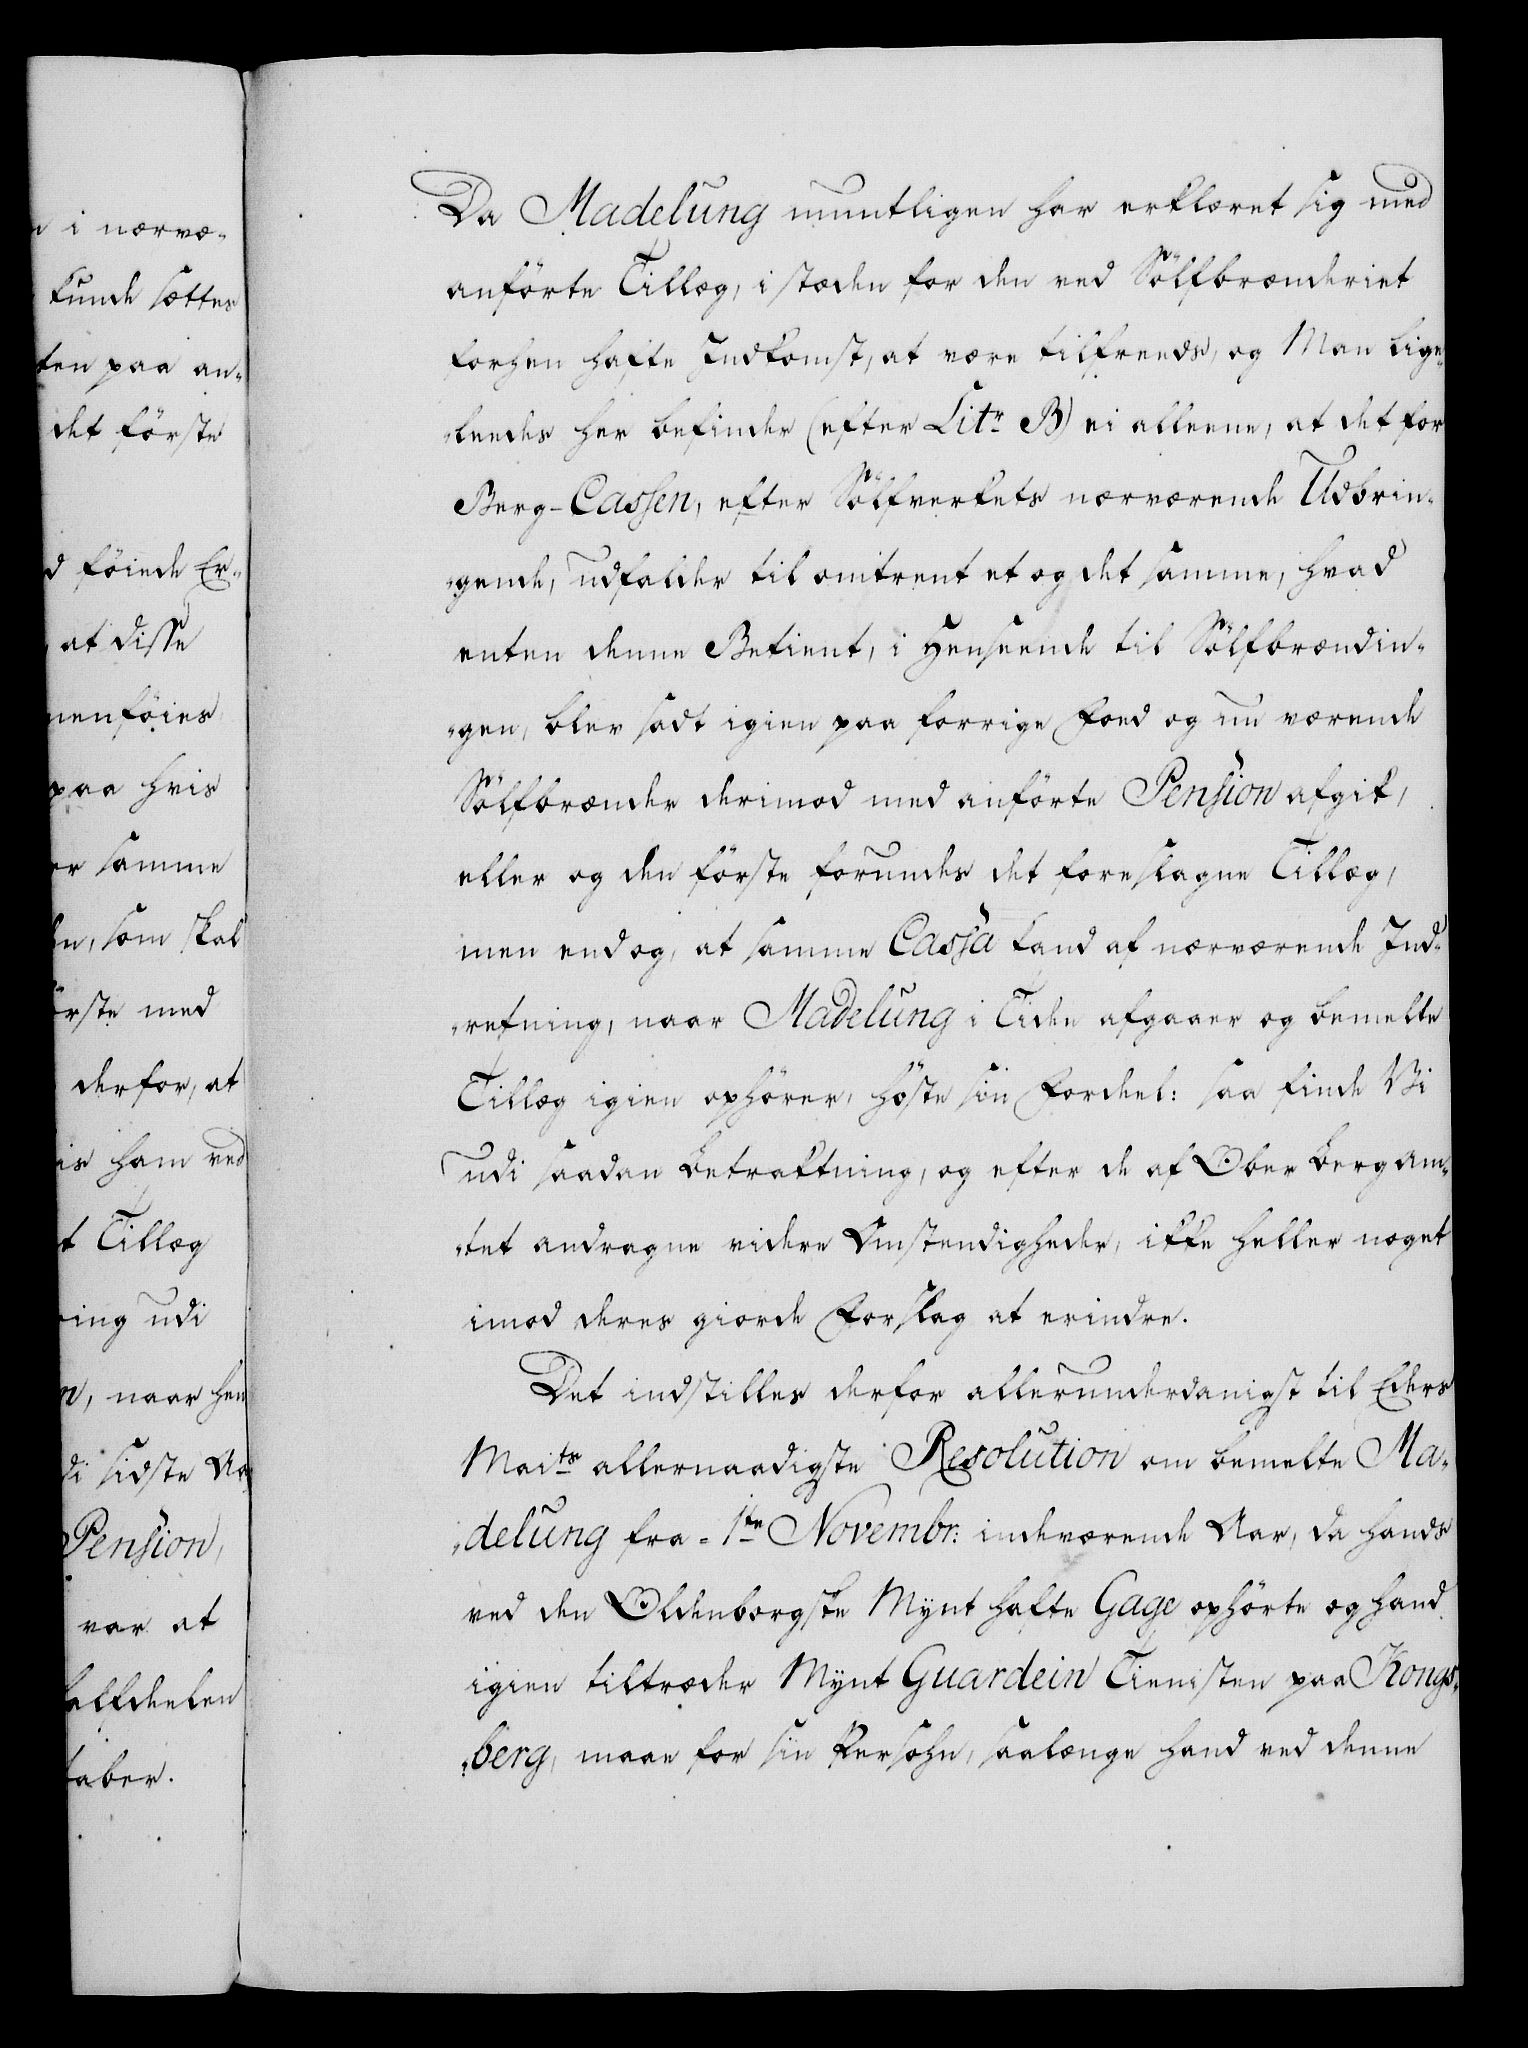 n i nærvæ-
kunde sættes
ten paa an-
det förste
d föiede Er-
at disse
menföies
paa hvis
er samme
en, som skal
örste med
derfor, at
is ham ved
t Tillæg
ring udi
n, naar hen
di sidste Aa
Pension,
var at
halfdeelen
taber.
Da Madelung muntligen har erklæret sig med
anförte Tillæg, i stæden for den ved Sölfbrænderiet
forhen hafte Indkomst, at være tilfreeds, og Man lige-
-leedes her befinder (efter Litr B) ei alleene, at det for
Berg-Cassen, efter Sölfverkets nærværende Udbrin-
-gende, udfalder til omtrent et og det samme, hvad
enten denne Betient, i Henseende til Sölfbrændin-
-gen, blev sadt igien paa forrige Foed og nu værende
Sölfbrænder derimod med anförte Pension afgik,
eller og den förste forundes det foreslagne Tillæg,
men endog, at samme Cassa kand af nærværende Ind-
-retning, naar Madelung i Tiden afgaaer og bemelte
Tillæg igien ophörer, höste sin Fordeel: saa finde Vi
udi saadan Betraktning, og efter de af Ober Berg Am-
-tet andragne videre Omstendigheder, ikke heller noget
imod deres giorde Forslag at erindre.
Det indstilles derfor allerunderdanigst til Eders
Maits allernaadigste Resolution om bemelte Ma-
-delung fra 1te Novembr: indeværende Aar, da hands
ved den Oldenborgske Mynt hafte Gage ophörte og hand
igien tiltræder Mynt Guardein Tienisten paa Kongs-
-berg, maae for sin Persohn, saalænge hand ved denne